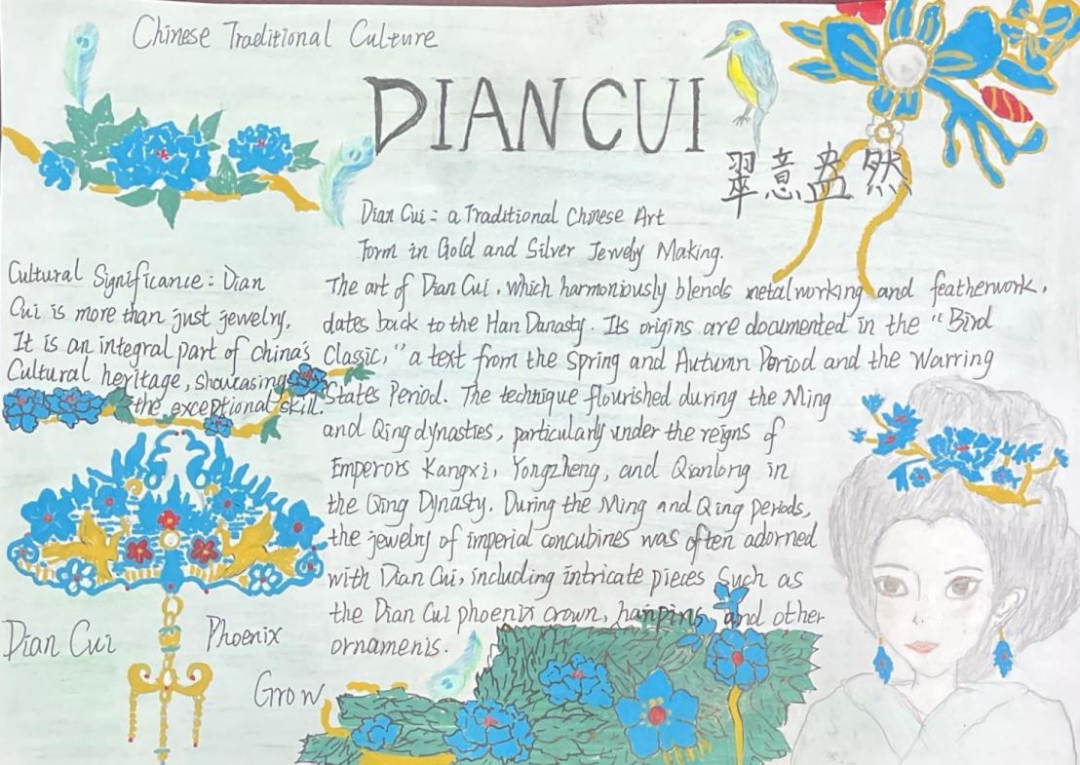 Chinese Traditional Culture
DIAN CUI
翠意盎然
Dian Cui: a Traditional Chinese Art
Form in Gold and Silver Jewelry Making.
Cultural Significance: Dian
Cui is more than just jewelry.
It is an integral part of china's
Cultural heritage, showcasing
the exceptional skill.
The art of Dian Cui, which harmoniously blends metalworking and featherwork,
dates back to the Han Danasty. Its origins are documented in the "Bird
Classic," a text from the Spring and Autumn Period and the Warring
States Period. The technique flourished during the Ming
and Qing dynasties, particularly under the reigns of
Emperors Kangxi, Yongzheng, and Qianlong in
the Qing Dynasty. During the Ming and Qing periods,
the jewelry of imperial concubines was often adorned
with Dian Cui, including intricate pieces Such as
the Dian Cui phoenix crown, hairpins and other
ornaments.
Dian Cui Phoenix
Grow